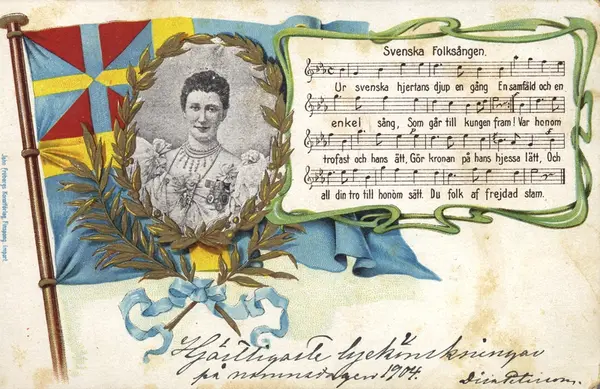 Svenska Folksången.
Ur svenska hjertans djup en gång En samfäld och en
enkel sång, Som går till kungen fram! Var honom
trofast och hans ätt, Gör kronan på hans hjessa lätt, Och
all din tro till honom sätt. Du folk af frejdad stam.
Hjärtligaste lyckönskningar
på namnsdagen 1904.